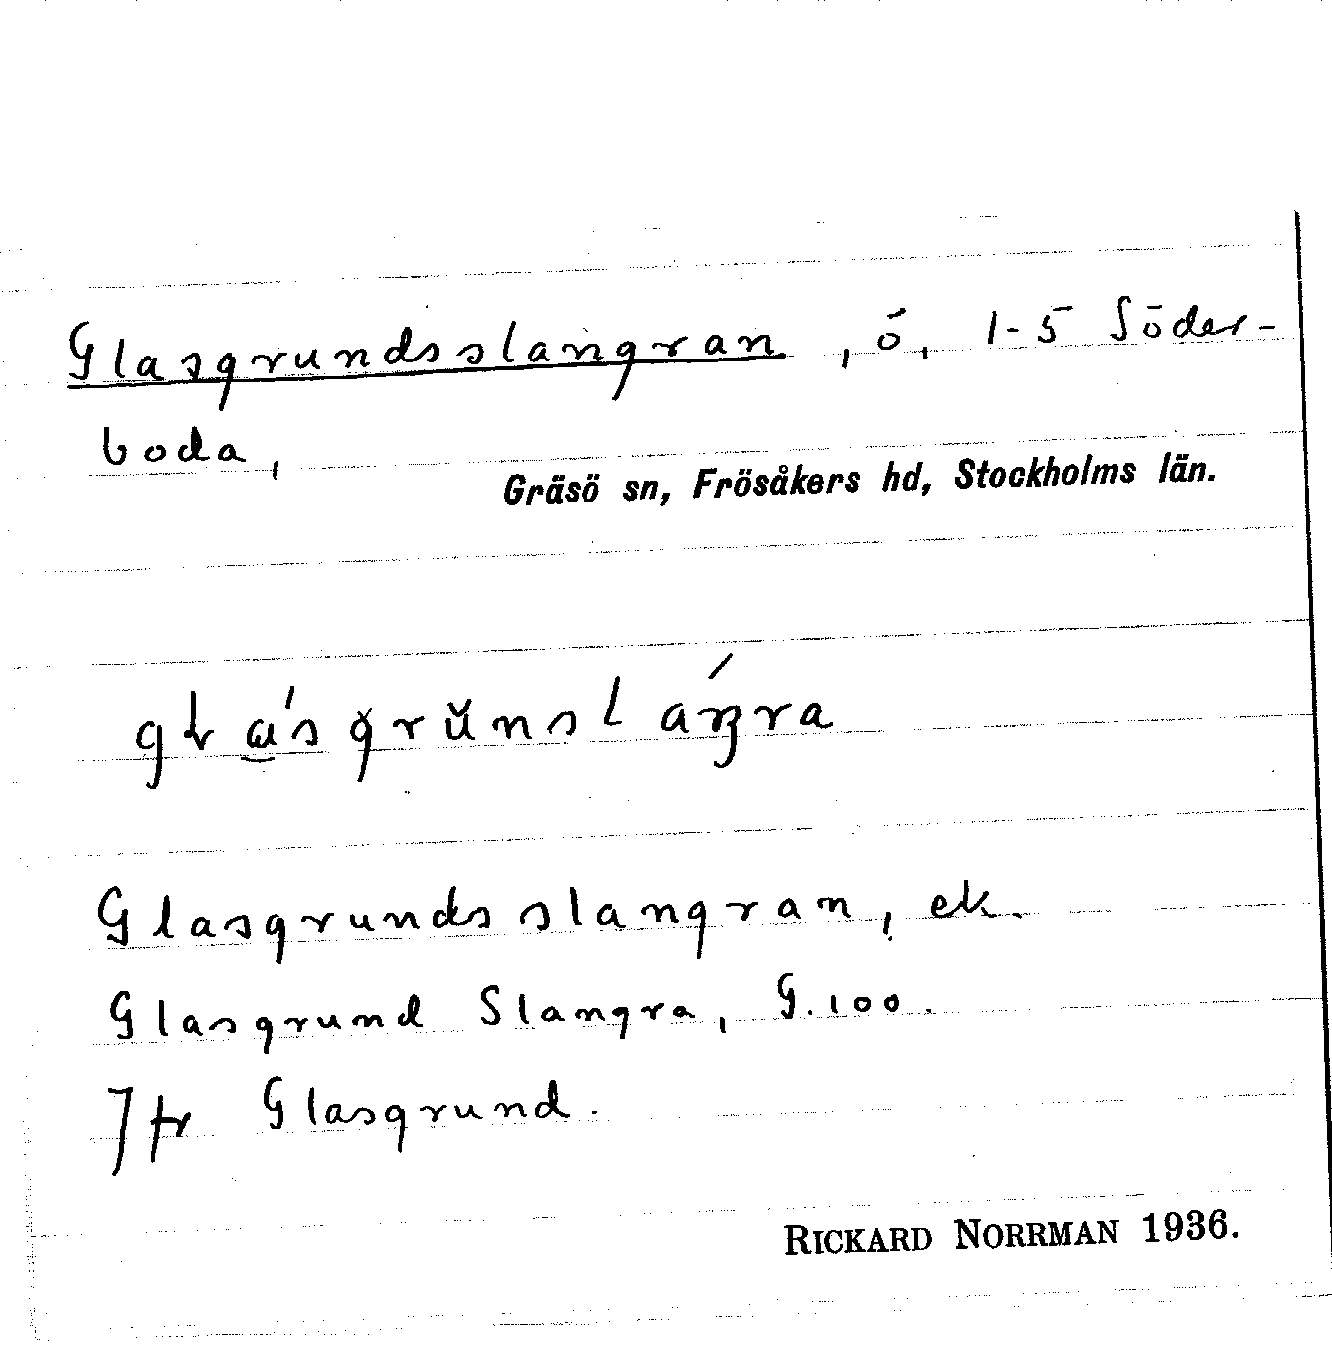 Glasgrundsslangran, ö, 1-5 Söder-
boda,
Gräsö sn, Frösåkers hd, Stockholms län.
Glasgrundsslangran, ek.
Glasgrund Slangra, G. 100.
Jfr Glasgrund.
RICKARD NORRMAN 1936.